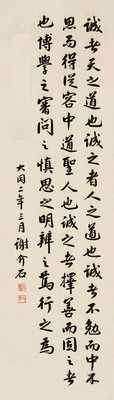 誠者天之道也誠之者人之道也誠者不勉而中不
思而得從容中道聖人也誠之者擇善而固之者
也博學之審問之慎思之明辨之篤行之為
大同二年三月謝介石